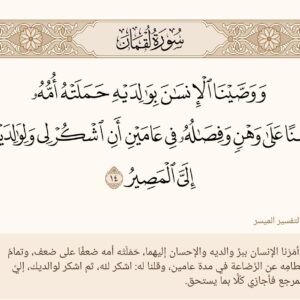 سُورَةُ لُقْمَان
وَوَصَّيْنَا ٱلْإِنسَٰنَ بِوَٰلِدَيْهِ حَمَلَتْهُ أُمُّهُۥ
نًا عَلَىٰ وَهْنٍ وَفِصَٰلُهُۥ فِى عَامَيْنِ أَنِ ٱشْكُرْ لِى وَلِوَٰلِدَيْ
إِلَىَّ ٱلْمَصِيرُ ١٤
التفسير الميسر
أمَرْنا الإنسان ببرِّ والديه والإحسان إليهما، حَمَلَتْه أمه ضعفًا على ضعف، وتمامُ
طامِه عن الرَّضاعة في مدة عامين، وقلنا له: اشكر لله، ثم اشكر لوالديك، إليَّ
مرجع فأُجازي كُلًّا بما يستحق.